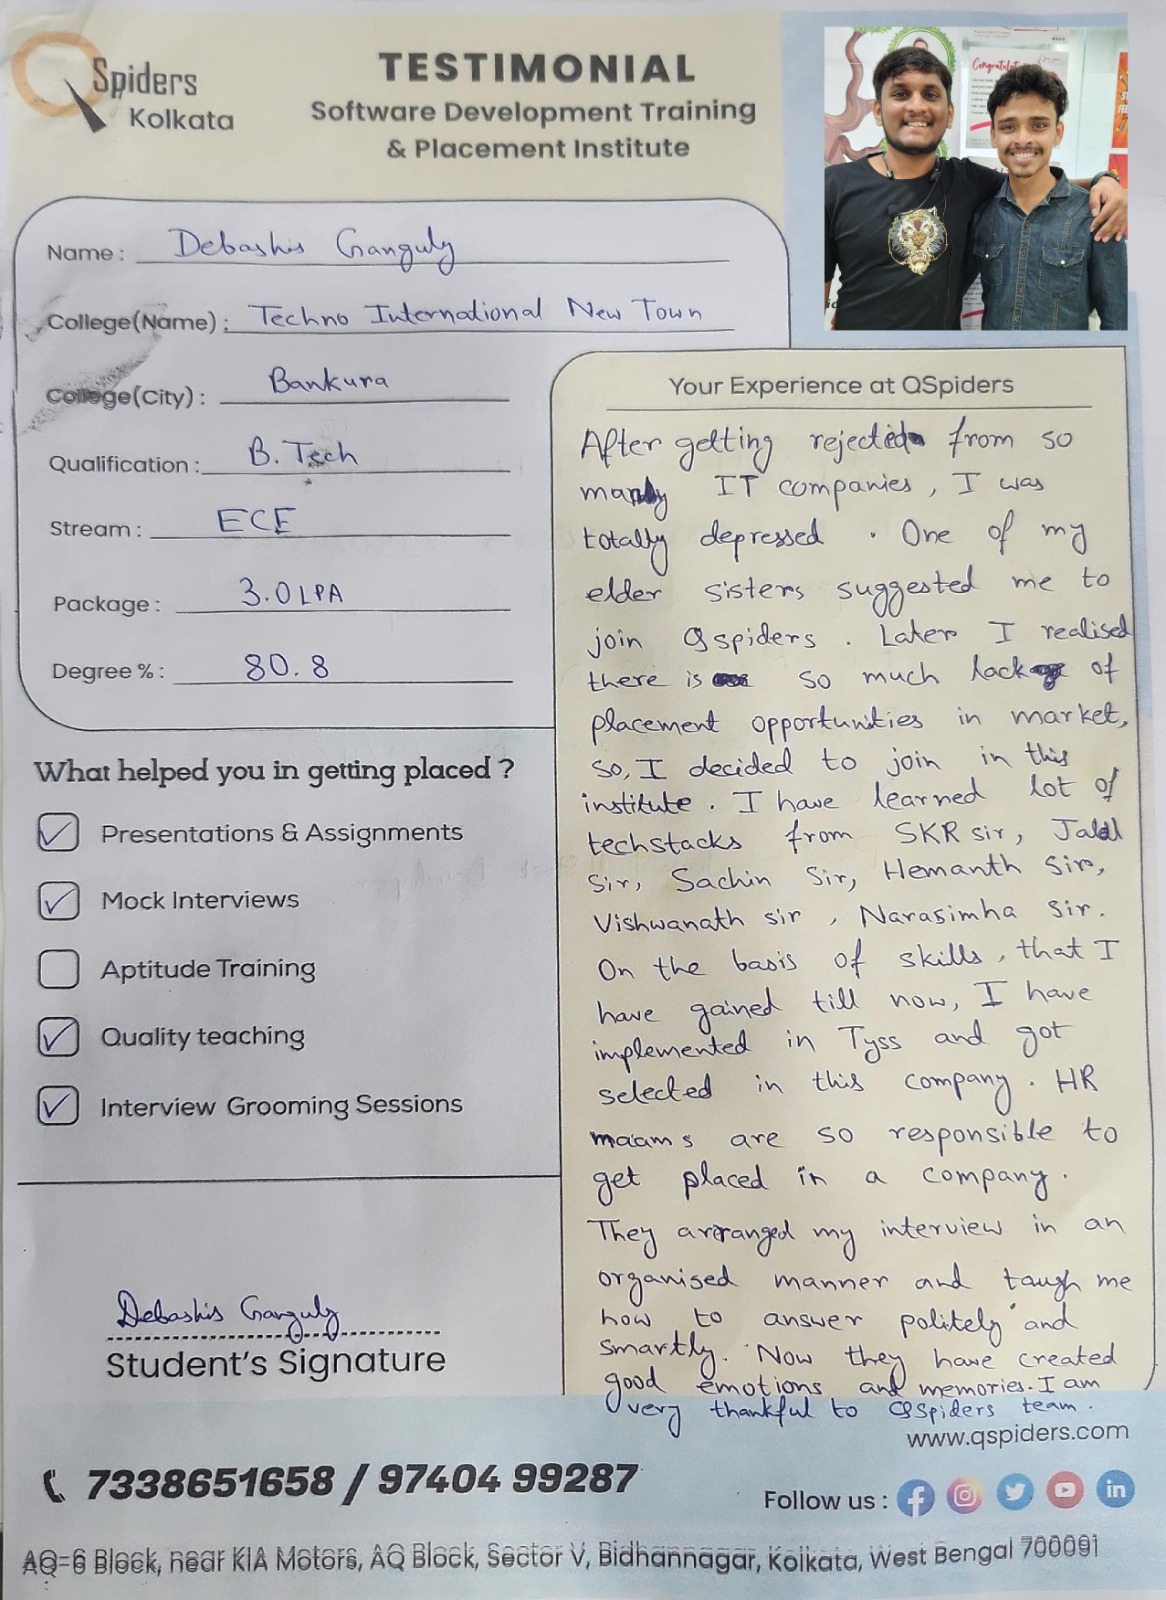 QSpiders
Kolkata
TESTIMONIAL
Software Development Training
& Placement Institute
Congratulat
Name : Debashis Ganguly
College(Name) : Techno International New Town
College(City) : Bankura
Qualification : B. Tech
Stream : ECE
Package : 3.0 LPA
Degree % : 80.8
What helped you in getting placed ?
Presentations & Assignments
Mock Interviews
Aptitude Training
Quality teaching
Interview Grooming Sessions
Debashis Ganguly
Student's Signature
Your Experience at QSpiders
After getting rejected from so
many IT companies, I was
totally depressed . One of my
elder sisters suggested me to
join Qspiders . Later I realised
there is so much lack of
placement opportunities in market,
so, I decided to join in this
institute. I have learned lot of
techstacks from SKR sir, Jalal
Sir, Sachin Sir, Hemanth Sir,
Vishwanath sir , Narasimha Sir.
On the basis of skills, that I
have gained till now, I have
implemented in Tyss and got
selected in this company. HR
maams are so responsible to
get placed in a company.
They arranged my interview in an
organised manner and taugh me
how to answer politely and
smartly. Now they have created
good emotions and memories. I am
very thankful to QSpiders team.
www.qspiders.com
7338651658 / 97404 99287
Follow us :
AQ-6 Block, near KIA Motors, AQ Block, Sector V, Bidhannagar, Kolkata, West Bengal 700091